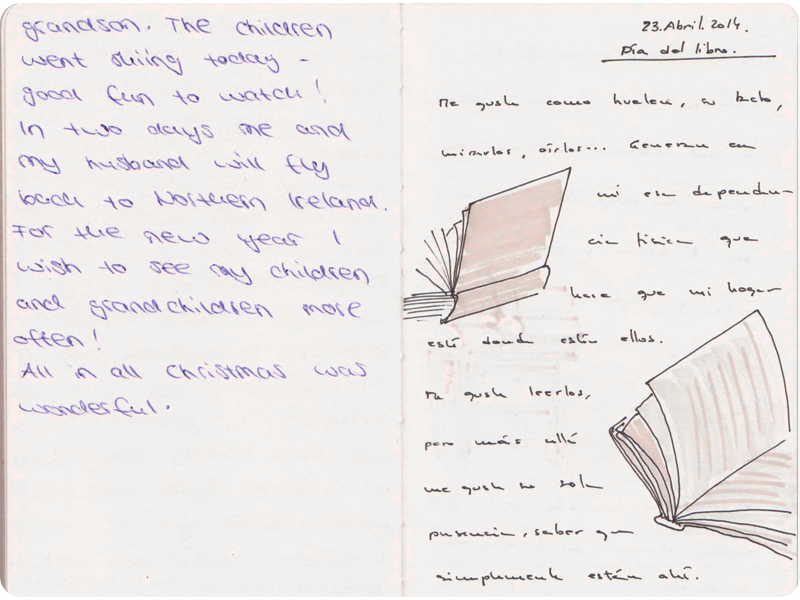 grandson. The children
went skiing today -
good fun to watch!
In two days me and
my husband will fly
back to Northern Ireland.
For the new year I
wish to see my children
and grandchildren more
often!
All in all Christmas was
wonderful.
23. Abril. 2014.
Día del libro.
Me gusta como huelen, su tacto,
mirarlos, oírlos... Generan en
mi esa dependen-
cia física que
hace que mi hogar
esté donde estén ellos.
Me gusta leerlos,
pero más allá
me gusta su sola
presencia, saber que
simplemente están ahí.